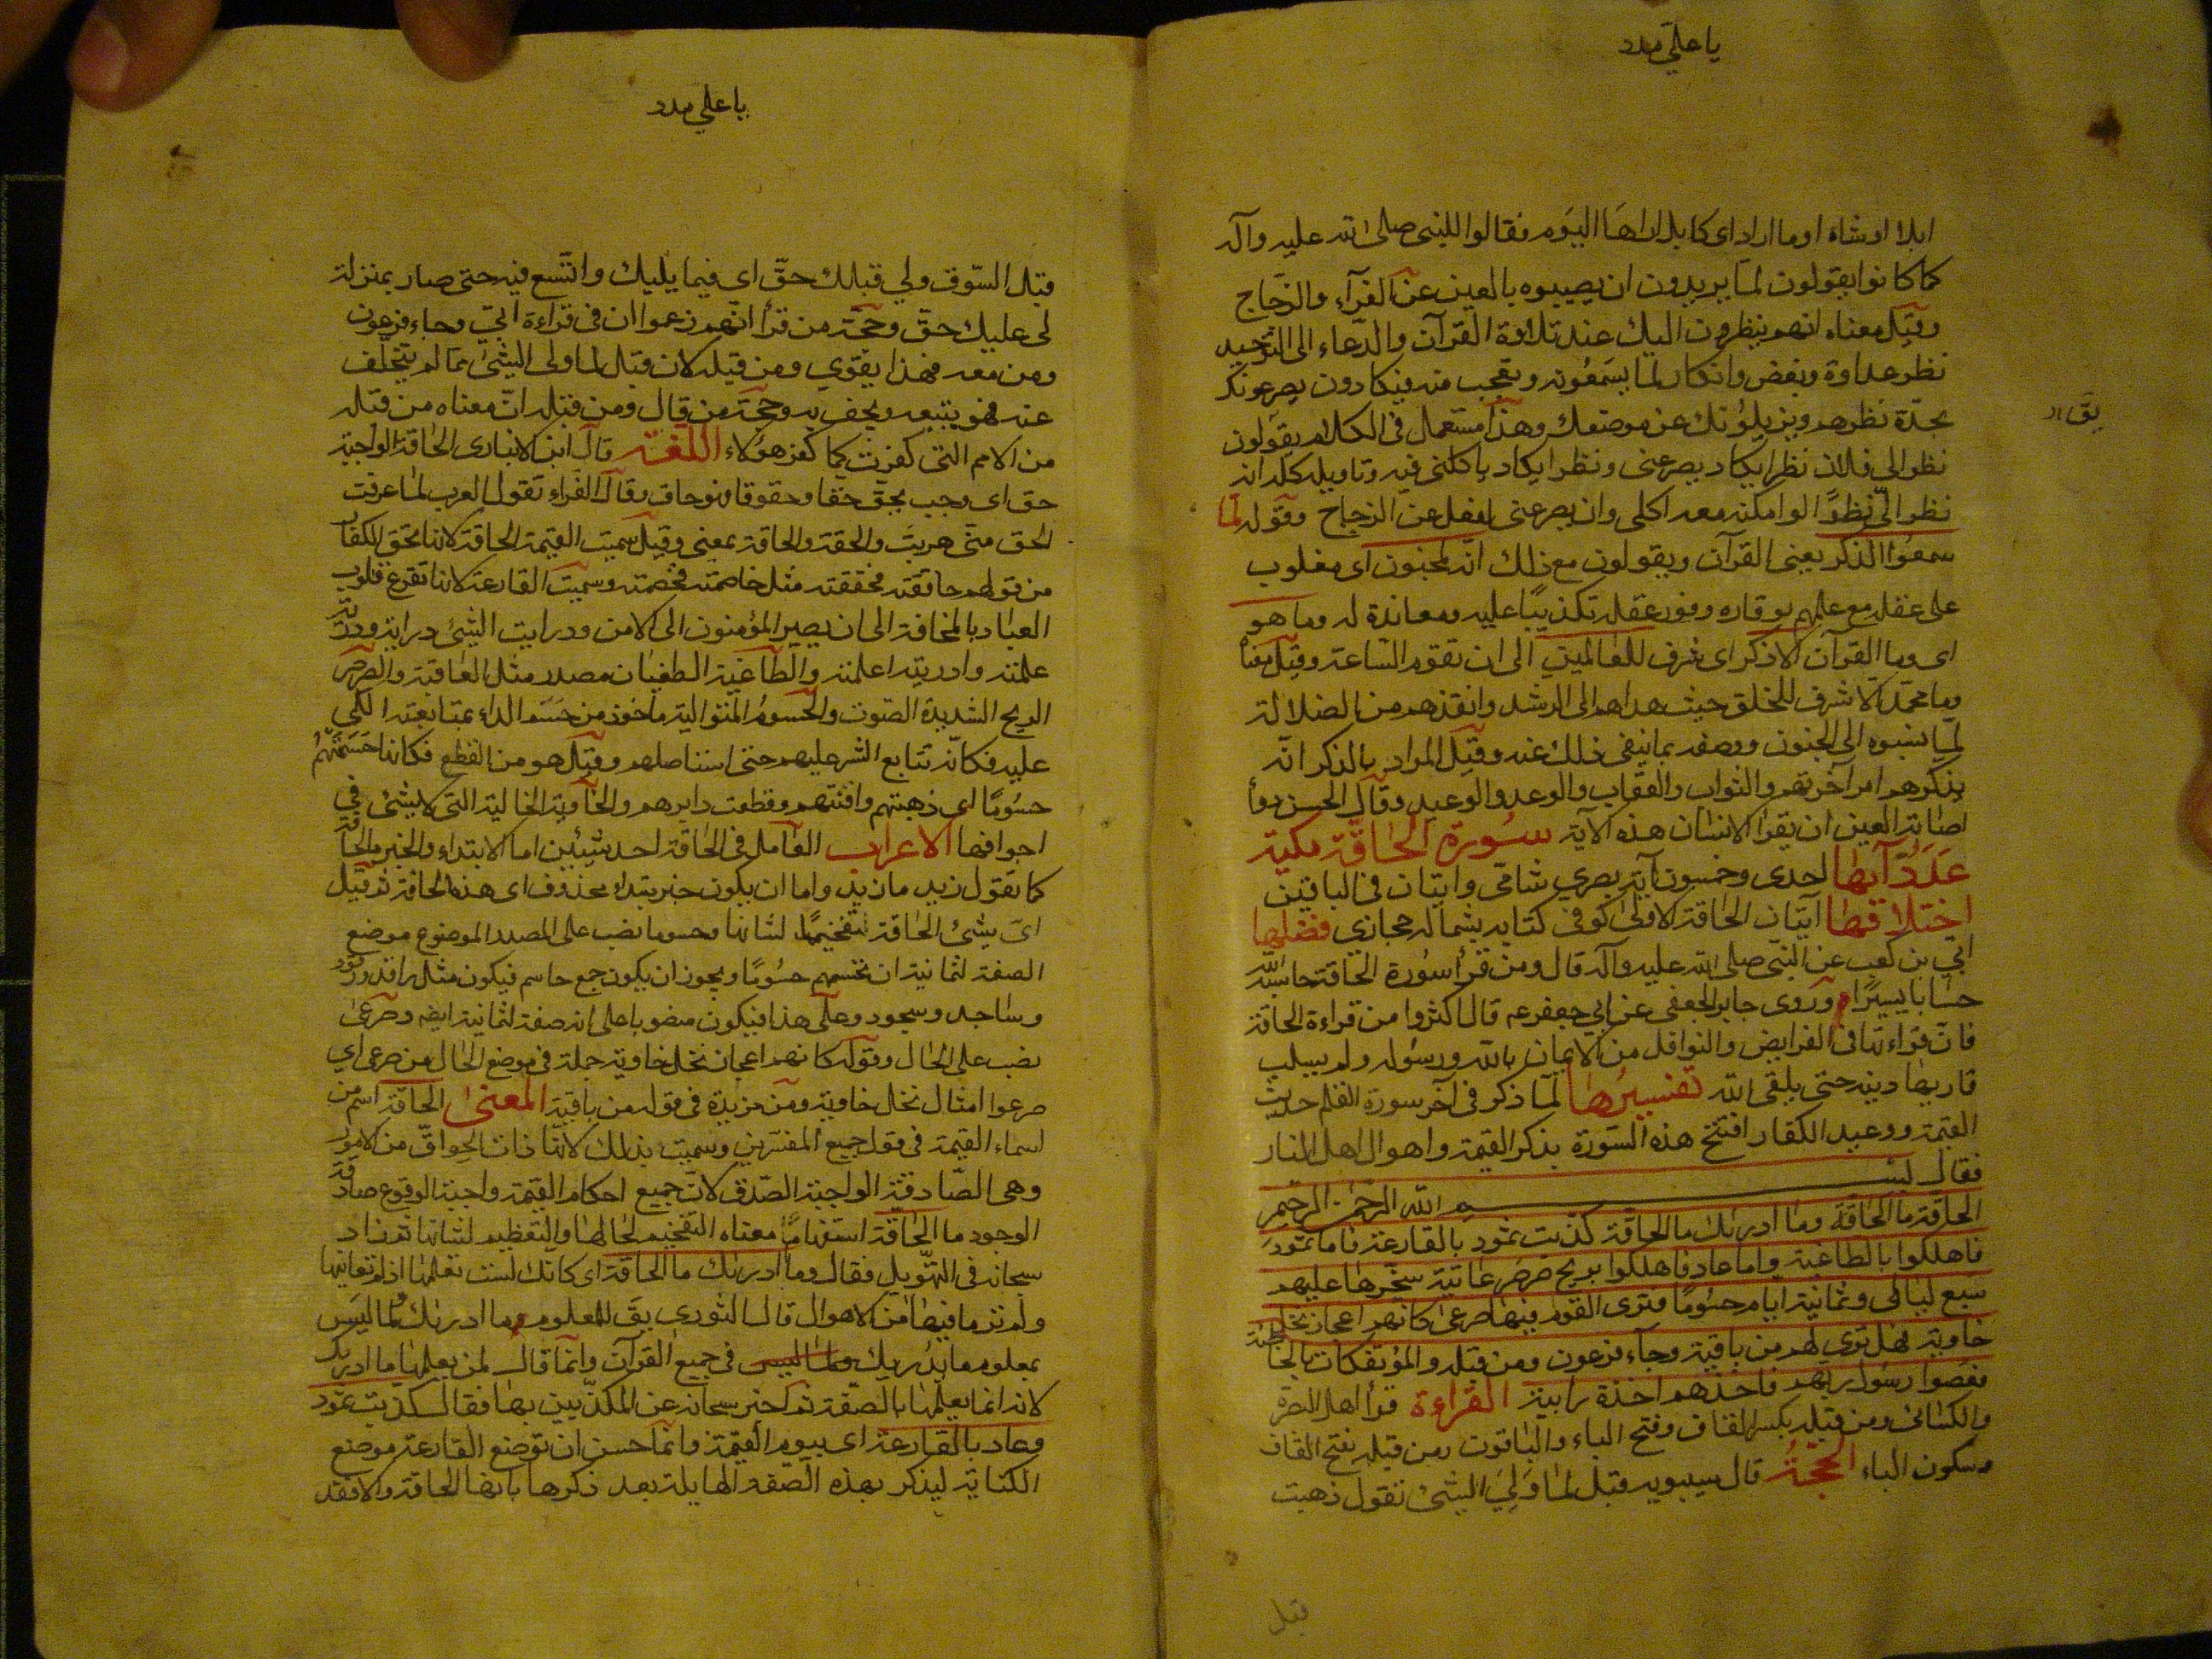 يا علي مدد
ابلا او شاة او ما اراد اى كابل اراها اليوم فقالوا للنبى صلى الله عليه وآله
كما كانوا يقولون لما يريدون ان يصيبوه بالعين عن الفرآء والزجاج
وقيل معناه انهم ينظرون اليك عند تلاوة القرآن والدعاء الى التوحيد
نظر عداوة وبغض وانكار لما يسمعونه وتعجب منه فيكادون يصرعونك
بحدة نظرهم ويزيلونك عن موضعك وهذا مستعمل فى الكلام يقولون
يق
نظر الى فلان نظرا يكاد يصرعنى ونظرا يكاد ياكلنى فيه وتاويله كله انه
نظر الىّ نظرًا لو امكنه معه اكلى وان يصرعنى لفعل عن الزجاج وقوله لمّا
سمعوا الذكر يعنى القرآن ويقولون مع ذلك انه لمجنون اى مغلوب
على عقله مع علمهم بوقاره ووفور عقله تكذيبًا عليه ومعاندة له وما هو
اى وما القرآن الا ذكر اى شرف للعالمين الى ان تقوم الساعة وقيل معنا
وما محمد الا شرف للخلق حيث هداهم الى الرشد وانقذهم من الضلالة
لما نسبوه الى الجنون وصفه بما ينفى ذلك عنه وقيل المراد بالذكر انه
يذكرهم امر آخرتهم والثواب والعقاب والوعد والوعيد وقال الحسن دوآ
اصابة العين ان يقرا الانسان هذه الآية سورة الحاقّة مكية
عدد آيها احدى وخمسون آية بصري شامى وايتان فى الباقين
اختلافها آيتان الحاقة الاولى كوفى كتابه بشماله حجازي فضلها
ابيّ بن كعب عن النبى صلى الله عليه وآله قال ومن قرأ سورة الحاقة حاسبه الله
حسابا يسيرًا وروى جابر الجعفى عن ابى جعفر ع قال اكثروا من قراءة الحاقة
فان قراءتها فى الفرايض والنوافل من الايمان بالله ورسوله ولم يسلب
قاريها دينه حتى يلقى الله تفسيرها لما ذكر فى آخر سورة القلم حديث
القيمة ووعيد الكفار افتتح هذه السورة بذكر القيمة واهوال اهل النار
فقال بسم الله الرحمن الرحيم
الحاقة ما الحاقة وما ادريك ما الحاقة كذبت ثمود بالقارعة فاما ثمود
فاهلكوا بالطاغية واما عاد فاهلكوا بريح صرصر عاتية سخرها عليهم
سبع ليالى وثمانية ايام حسومًا فترى القوم فيها صرعى كانهم اعجاز نخل
خاوية فهل ترى لهم من باقية وجآء فرعون ومن قبله والمؤتفكات بالخاطئة
فعصوا رسول ربهم فاخذهم اخذة رابية القراءة قرأ اهل البصرة
والكسائى ومن قبله بكسر القاف وفتح الباء والباقون ومن قبله بفتح القاف
وسكون الباء الحجة قال سيبويه قبل لما وَلِيَ الشئ تقول ذهبت
قبل
يا علي مدد
قبل السّوق ولي قبلك حقّ اى فيما يليك واتّسع فيه حتى صار بمنزلة
لى عليك حقّ وحجّة من قرأ انهم زعموا ان فى قراءة ابيّ وجاء فرعون
ومن معه فهذا يقوي ومن قبله لان قبل لما ولى الشئ مما لم يتخلف
عنه فهو يتبعه ويحف به وحجة من قال ومن قبله انّ معناه من قبله
من الامم التى كفرت كما كفر هؤلاء اللغة قال ابن الانبارى الحاقة الواجبة
حق اى وجب يحق حقا وحقوقا فهو حاق وقال الفراء تقول العرب لما عرفت
الحق منى هربت والحقة والحاقة بمعنى وقيل سميت القيمة الحاقة لانها تحق الكفار
من قولهم حاققته فحققته مثل خاصمته فخصمته وسميت القارعة لانها تقرع قلوب
العباد بالمخافة الى ان يصير المؤمنون الى الامن ودرايت الشئ دراية ودريته
علمته وادريته اعلمته والطاغية الطغيان مصدر مثل العافية والصرصر
الريح الشديدة الصوت والحسوم المتوالية ماخوذ من حسم الداء بمتابعة الكي
عليه فكانّه تتابع الشر عليهم حتى استاصلهم وقيل هو من القطع فكانها حسمتهم
حسومًا اى ذهبتهم وافنتهم وقطعت دابرهم والخاوية الخالية التى لا شئ في
اجوافها الاعراب العامل فى الحاقة احد شيئين اما الابتداء والخبر ما الحاقة
كما تقول زيد ما زيد واما ان يكون خبر مبتداء محذوف اى هذه الحاقة ثم قيل
اىّ شئ الحاقة تفخيمًا لشانها وحسوما نصب على المصدر الموضوع موضع
الصفة لثمانية ان تحسمهم حسومًا ويجوز ان يكون جمع حاسم فيكون مثل راقد ورقود
وساجد وسجود وعلى هذا فيكون منصوبا على انه صفة لثمانية ايضا وصرعى
نصب على الحال وقوله كانهم اعجاز نخل خاوية جملة فى موضع الحال من صرعى اي
صرعوا امثال نخل خاوية ومن مزيدة فى قوله من باقية المعنى الحاقة اسم من
اسماء القيمة فى قول جميع المفسرين وسميت بذلك لانها ذات الحواقّ من الامور
وهى الصّادقة الواجبة الصّدق لانّ جميع احكام القيمة واجبة الوقوع صادقة
الوجود ما الحاقة استفهامًا معناه التفخيم لحالها والتعظيم لشانها ثم زاد
سبحانه فى التهويل فقال وما ادريك ما الحاقة اى كانك لست تعلمها اذا لم تعاينها
ولم تر ما فيها من الاهوال قال الثوري يق للمعلوم ما ادريك ولما ليس
بمعلوم ما يدريك فى جميع القرآن وانما قال لمن يعلمها ما ادريك
لانه انما يعلمها بالصّفة ثم اخبر سبحانه عن المكذّبين بها فقال كذبت ثمود
وعاد بالقارعة اى بيوم القيمة وانّما حسن ان توضع القارعة موضع
الكناية ليذكر بهذه الصّفة الهايلة بعد ذكرها بانها الحاقة والا فقد